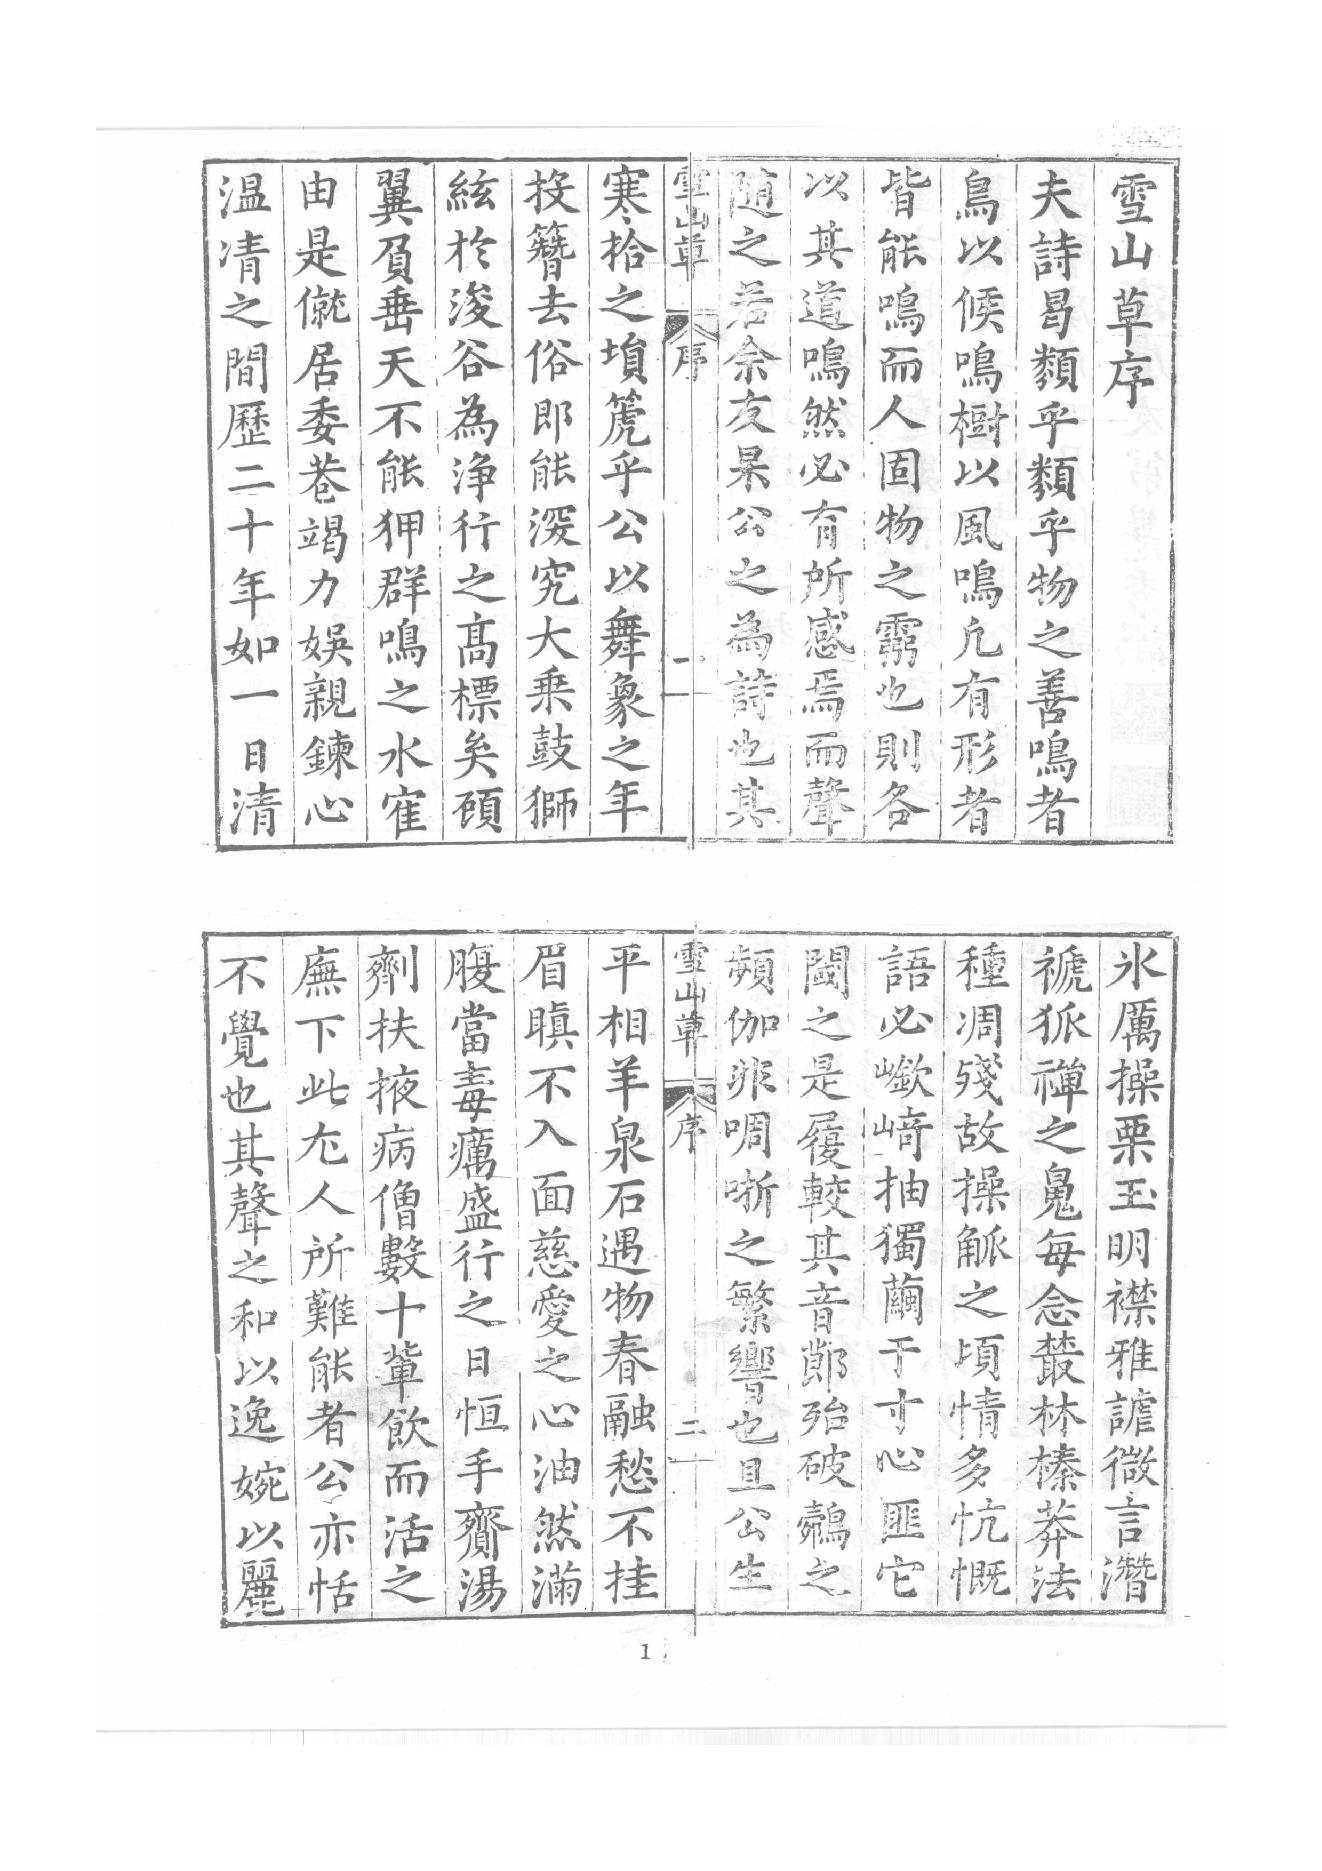 雪山草序
夫詩曷類乎類乎物之善鳴者
鳥以候鳴樹以風鳴凡有形者
皆能鳴而人固物之靈也則各
以其道鳴然必有所感焉而聲
隨之若余友杲公之為詩也其
雪山草 序 一
寒拾之塤箎乎公以舞象之年
投簪去俗即能深究大乗鼓獅
絃於浚谷為浄行之高標矣顧
翼頁垂天不能狎群鳴之水寉
由是僦居委巷竭力娛親鍊心
温凊之間歷二十年如一日清
氷厲操栗玉明襟雅謔微言潛
褫狐禪之鬼每念叢林榛莽法
種凋殘故操觚之頃情多忼慨
語必嶔﨑抽獨繭于寸心匪它
閾之是履較其音鄭殆破鷇之
頻伽非啁哳之繁響也且公生
雪山草 序 二
平相羊泉石遇物春融愁不挂
眉瞋不入面慈愛之心油然滿
腹當毒癘盛行之日恒手齎湯
劑扶掖病僧數十輩飲而活之
廡下此尤人所難能者公亦恬
不覺也其聲之和以逸婉以麗
1